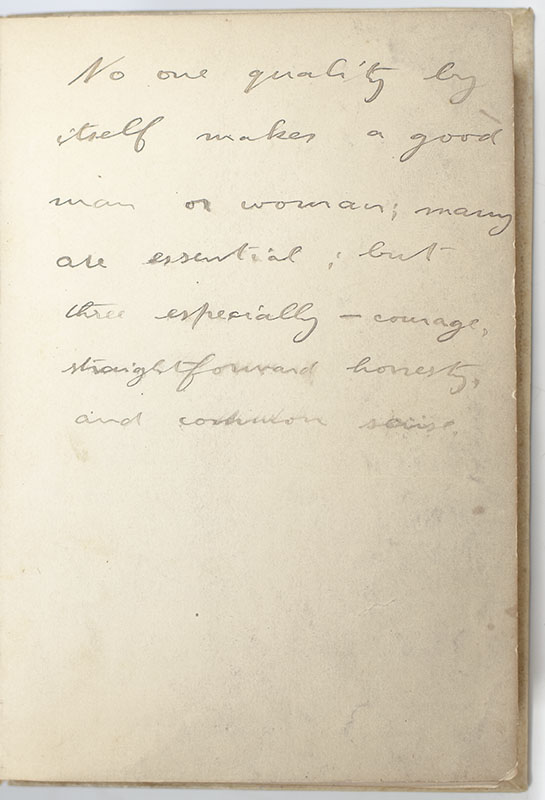 No one quality by
itself makes a good
man or woman; many
are essential; but
three especially — courage,
straightforward honesty,
and common sense.